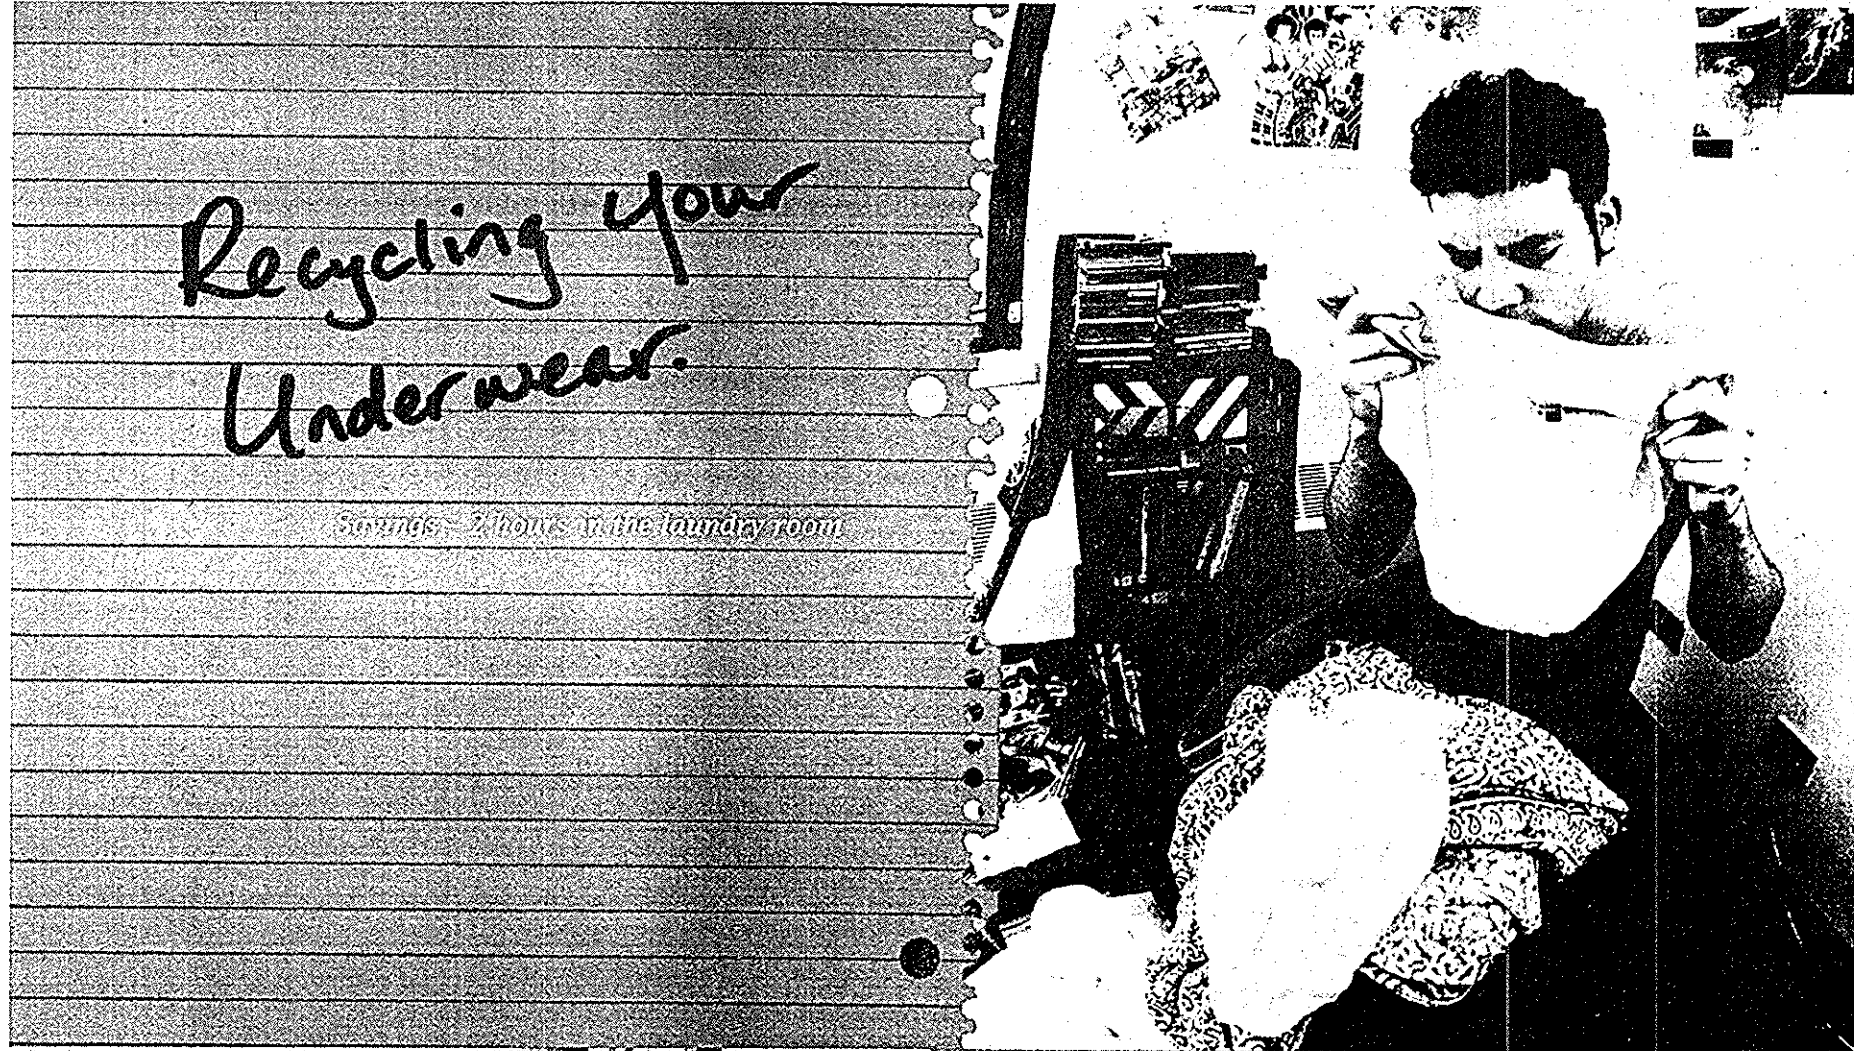 Recycling your
Underwear.
Savings - 2 hours in the laundry room